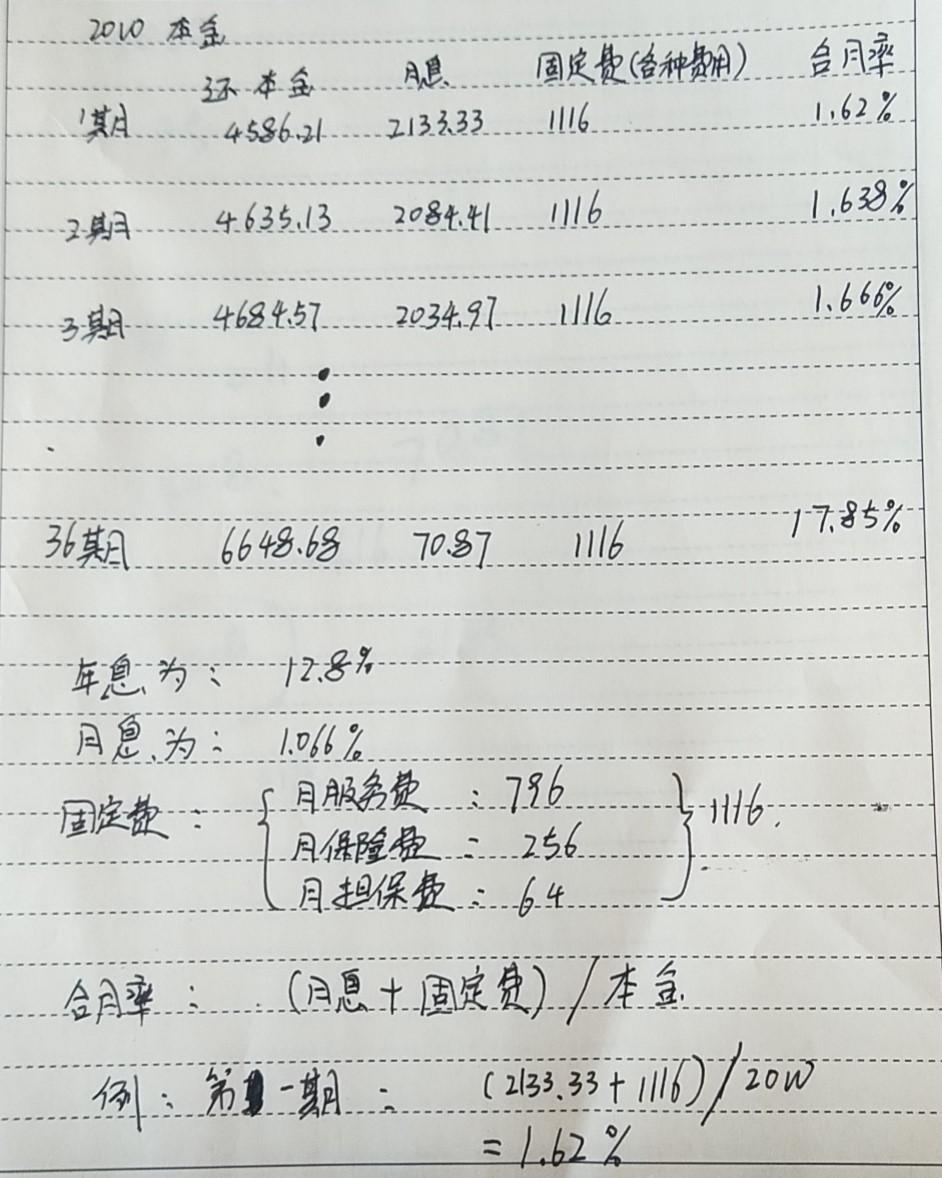 20W 本金
还本金 月息 固定费(各种费用) 合月率
1期 4586.21 2133.33 1116 1.62%
2期 4635.13 2084.41 1116 1.638%
3期 4684.57 2034.97 1116 1.666%
36期 6648.68 70.87 1116 17.85%
年息为: 12.8%
月息为: 1.066%
固定费: { 月服务费: 796
月保险费: 256
月担保费: 64 } 1116.
合月率: (月息+固定费)/本金
例: 第一期: (2133.33+1116)/20W
=1.62%